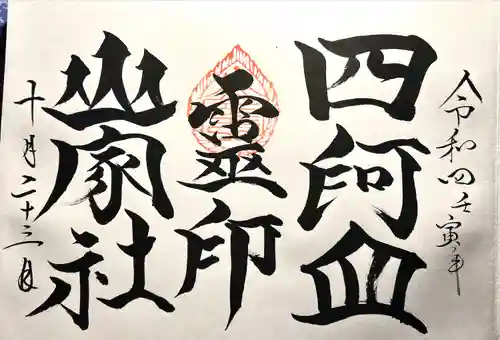 令和四壬寅年
四阿血
靈印
山家社
十月二十三日